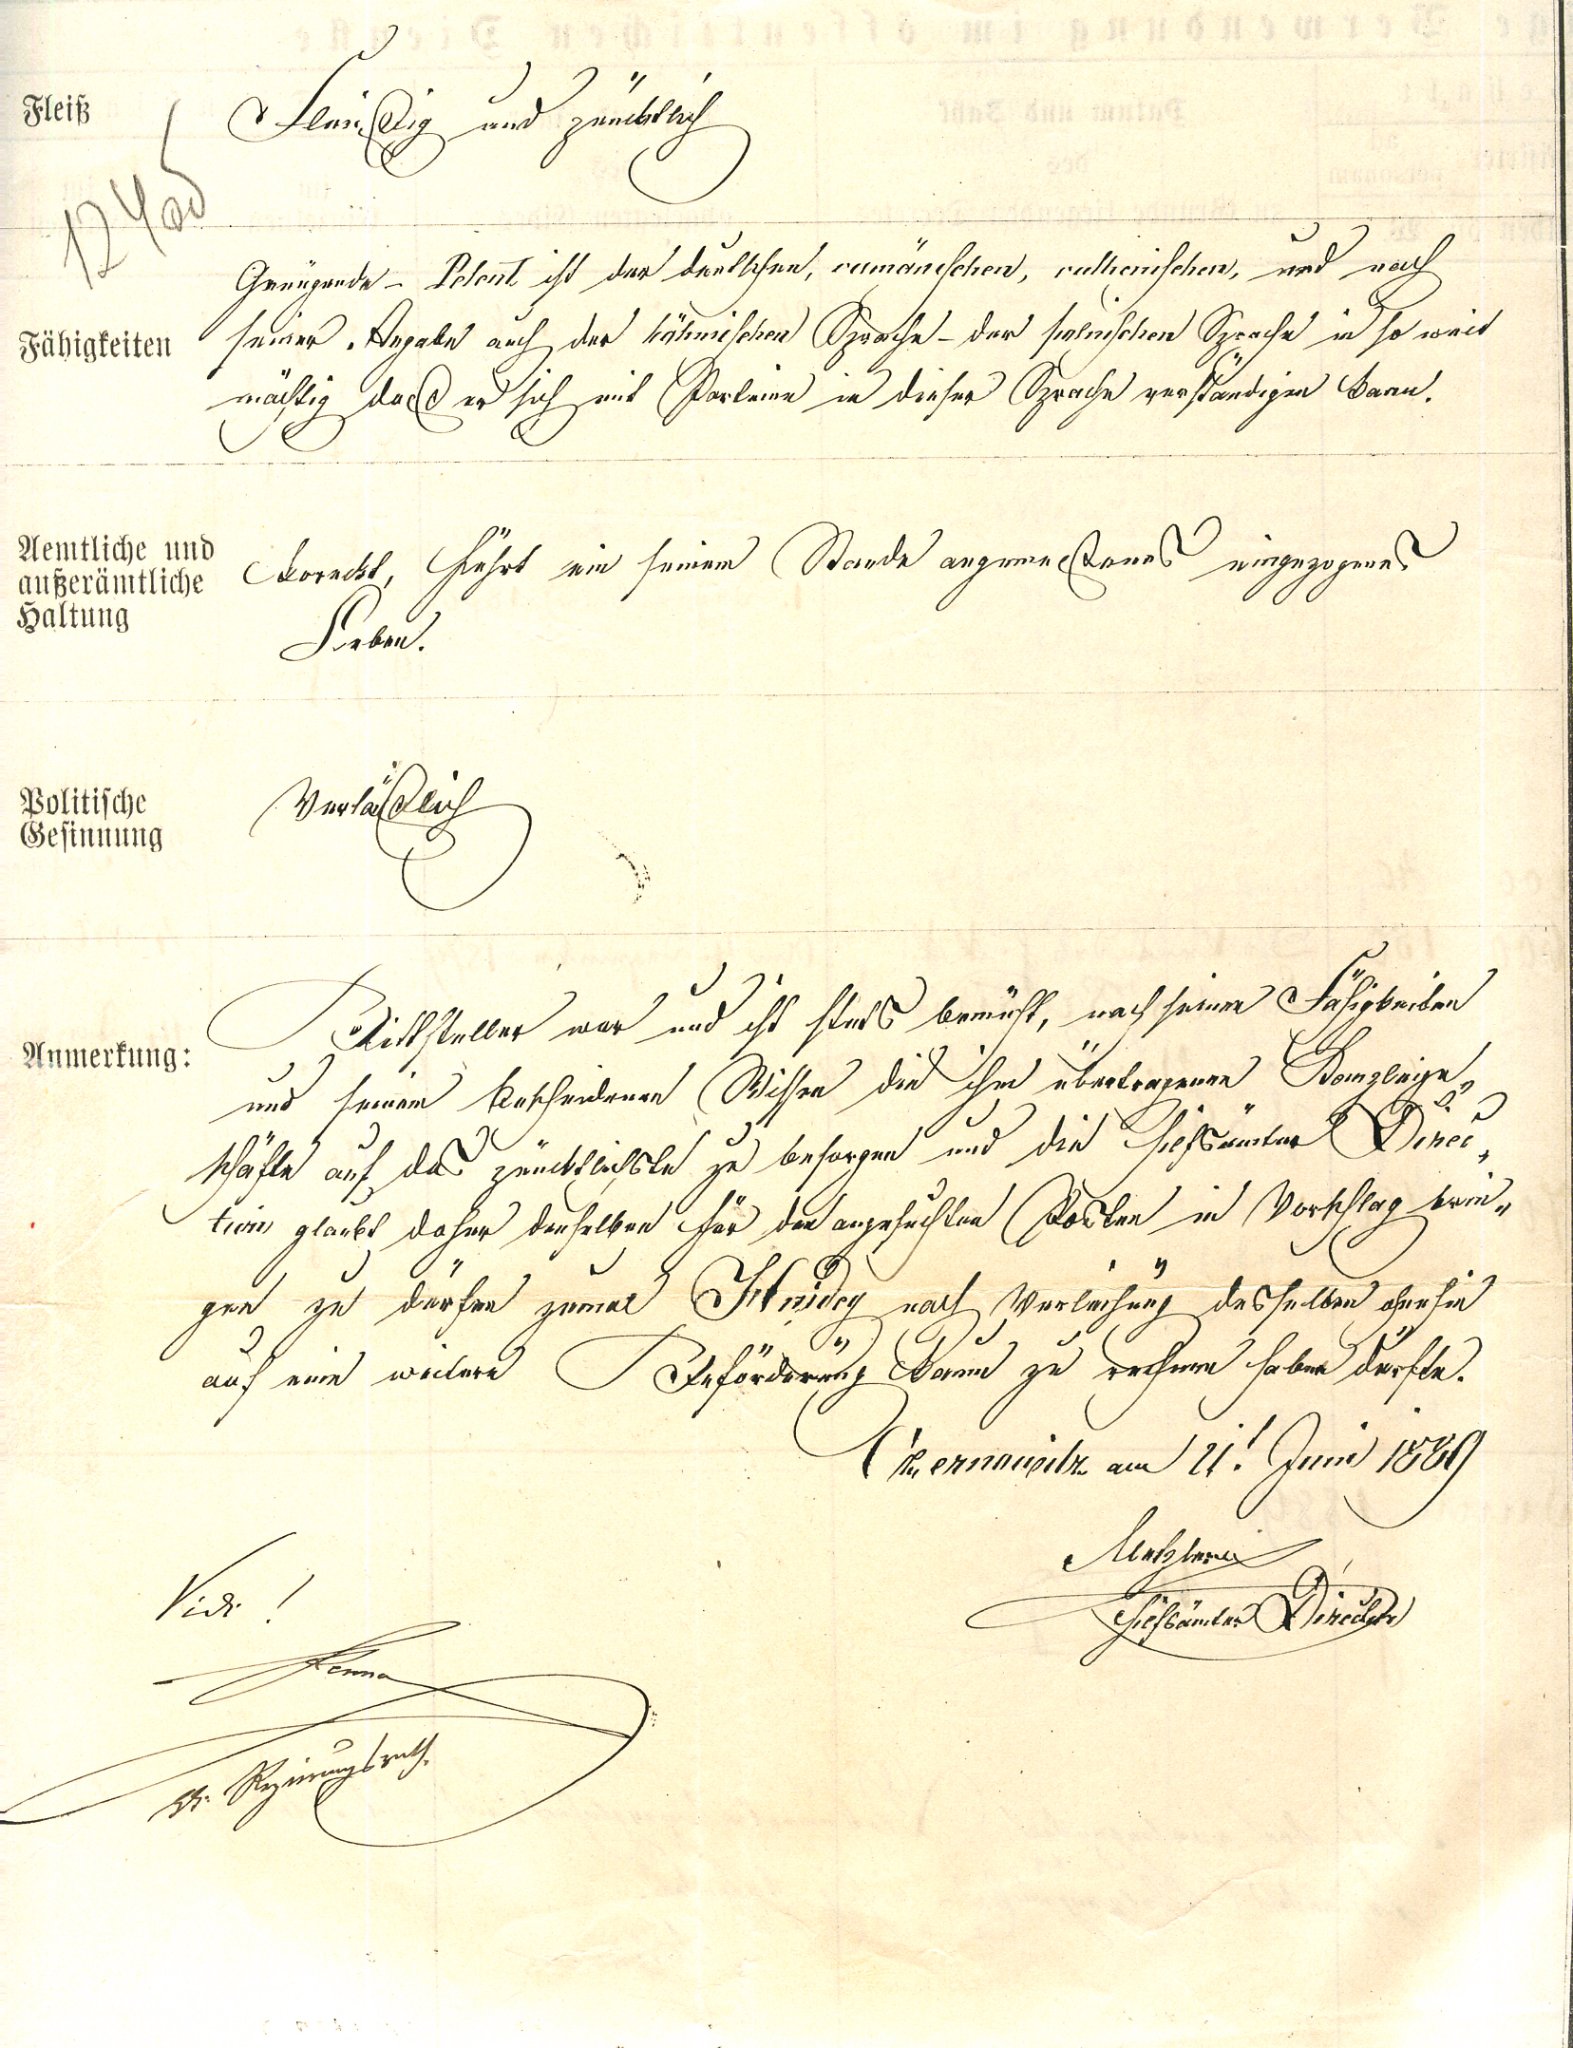 Fleiß
Fleißig und pünktlich
Fähigkeiten
Genügende – Petent ist der deutschen, rumänischen, ruthenischen, und nach
seiner Angabe auch der böhmischen Sprache – der polnischen Sprache in so weit
mächtig daß er sich mit Parteien in dieser Sprache verständigen kann.
Aemtliche und
außerämtliche
Haltung
korrekt, führt ein seinem Stande angemeßenes eingezogenes
Leben.
Politische
Gesinnung
Verläßlich
Anmerkung:
Bittsteller war und ist stets bemüht, nach seinen Fähigkeiten
und seinem bescheidenen Wissen die ihm übertragenen Kanzleige„
schäfte auf das pünktlichste zu besorgen und die Hilfsämter Direc„
tion glaubt daher denselben für den angesuchten Posten in Vorschlag brin„
gen zu dürfen zumal nach Verleihung desselben ohnehin
auf eine weitere Beförderung kaum zu rechnen haben dürfte.
Czernowitz am 21! Juni 1889
Hilfsämter Director
Vidi!
kk. Regierungsrath.